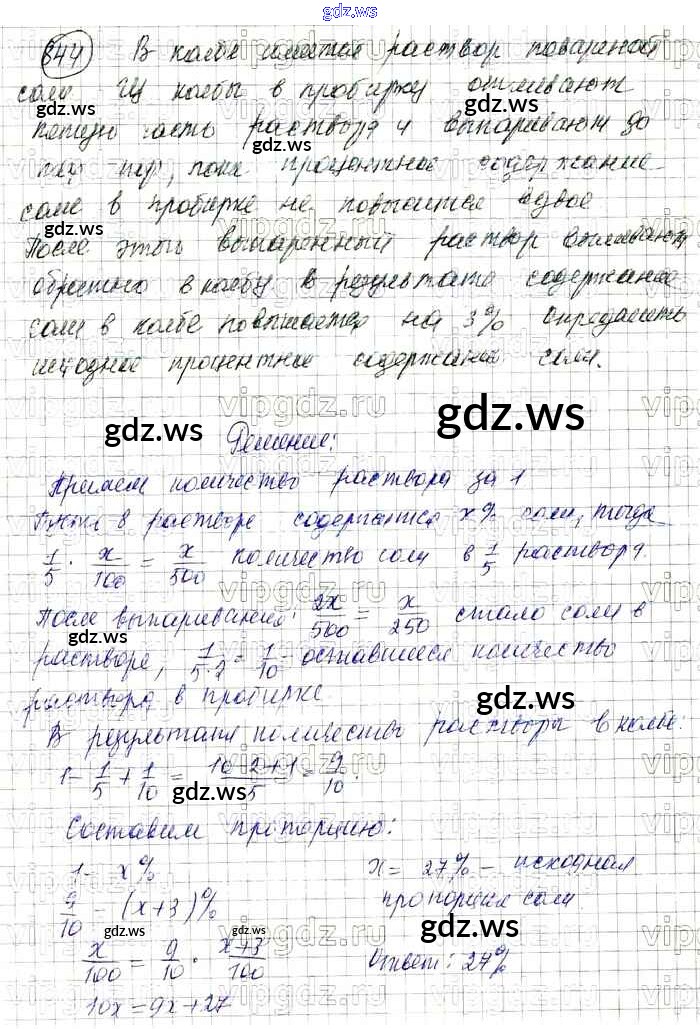 gdz.ws
844 В колбе имеется раствор поваренной
соли Из колбы в пробирку отливают
пятую часть раствора и выпаривают до
тех пор, пока процентное содержание
соли в пробирке не повысится вдвое
После этого выпаренный раствор выливают
обратно в колбу В результате содержание
соли в колбе повышается на 3% Определить
исходное процентное содержание соли.
Решение:
Примем количество раствора за 1
в растворе содержится x% соли, тогда
1/5 · x/100 = x/500 количество соли в 1/5 раствора.
После выпаривания: 2x/500 = x/250 стало соли в
растворе, 1/5·2 = 1/10 - оставшееся количество
раствора в пробирке
В результате количество раствора в колбе:
1 - 1/5 + 1/10 = 10-2+1/5 = 9/10.
Составим пропорцию:
1 - x%
9/10 - (x+3)%
x/100 = 9/10 · x+3/100
10x = 9x+27
x = 27% - исходная
пропорция соли
Ответ: 27%
gdz.ws
gdz.ws
gdz.ws
gdz.ws
gdz.ws
gdz.ws
gdz.ws
gdz.ws
gdz.ws
gdz.ws
gdz.ws
vipgdz.ru